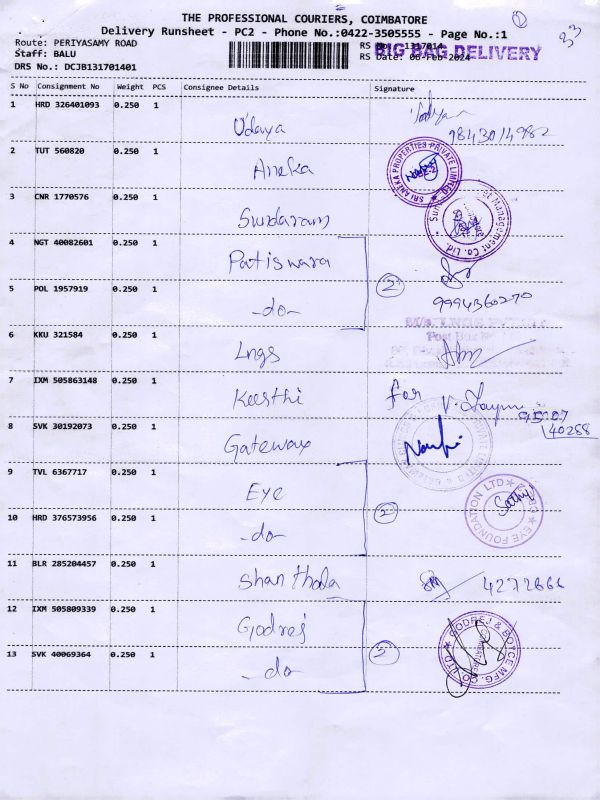 THE PROFESSIONAL COURIERS, COIMBATORE
Delivery Runsheet - PC2 - Phone No.:0422-3505555 - Page No.:1
Route: PERIYASAMY ROAD
RS No.: 1317014
BIG BAG DELIVERY
33
Staff: BALU
RS Date: 06-Feb-2024
DRS No.: DCJB131701401
S No Consignment No Weight PCS Consignee Details Signature
1 HRD 326401093 0.250 1
Udaya
9843014982
2 TUT 560820 0.250 1
Aneka
SRI ANEKA PROPERTIES PRIVATE LIMITED
3 CNR 1770576 0.250 1
Sundaram
Management Co. Ltd.
4 NGT 40082601 0.250 1
Patiswara
2
5 POL 1957919 0.250 1
-do-
9994360270
6 KKU 321584 0.250 1
Lngs
7 IXM 505863148 0.250 1
Keerthi
for
95007
40288
8 SVK 30192073 0.250 1
Gateway
9 TVL 6367717 0.250 1
Eye
EYE FOUNDATION LTD
Sathy
10 HRD 376573956 0.250 1
-do-
2
11 BLR 285204457 0.250 1
Shanthala
4272666
12 IXM 505809339 0.250 1
Godrej
GODREJ & BOYCE MFG. CO. LTD
COIMBATORE
13 SVK 40069364 0.250 1
-do-